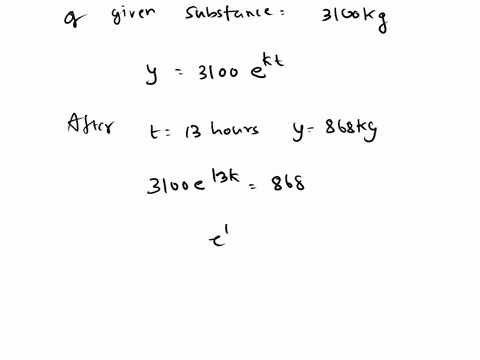 of given substance: 3100kg
y = 3100 e^{kt}
After t= 13 hours y= 868kg
3100 e^{13k} = 868
e^{1